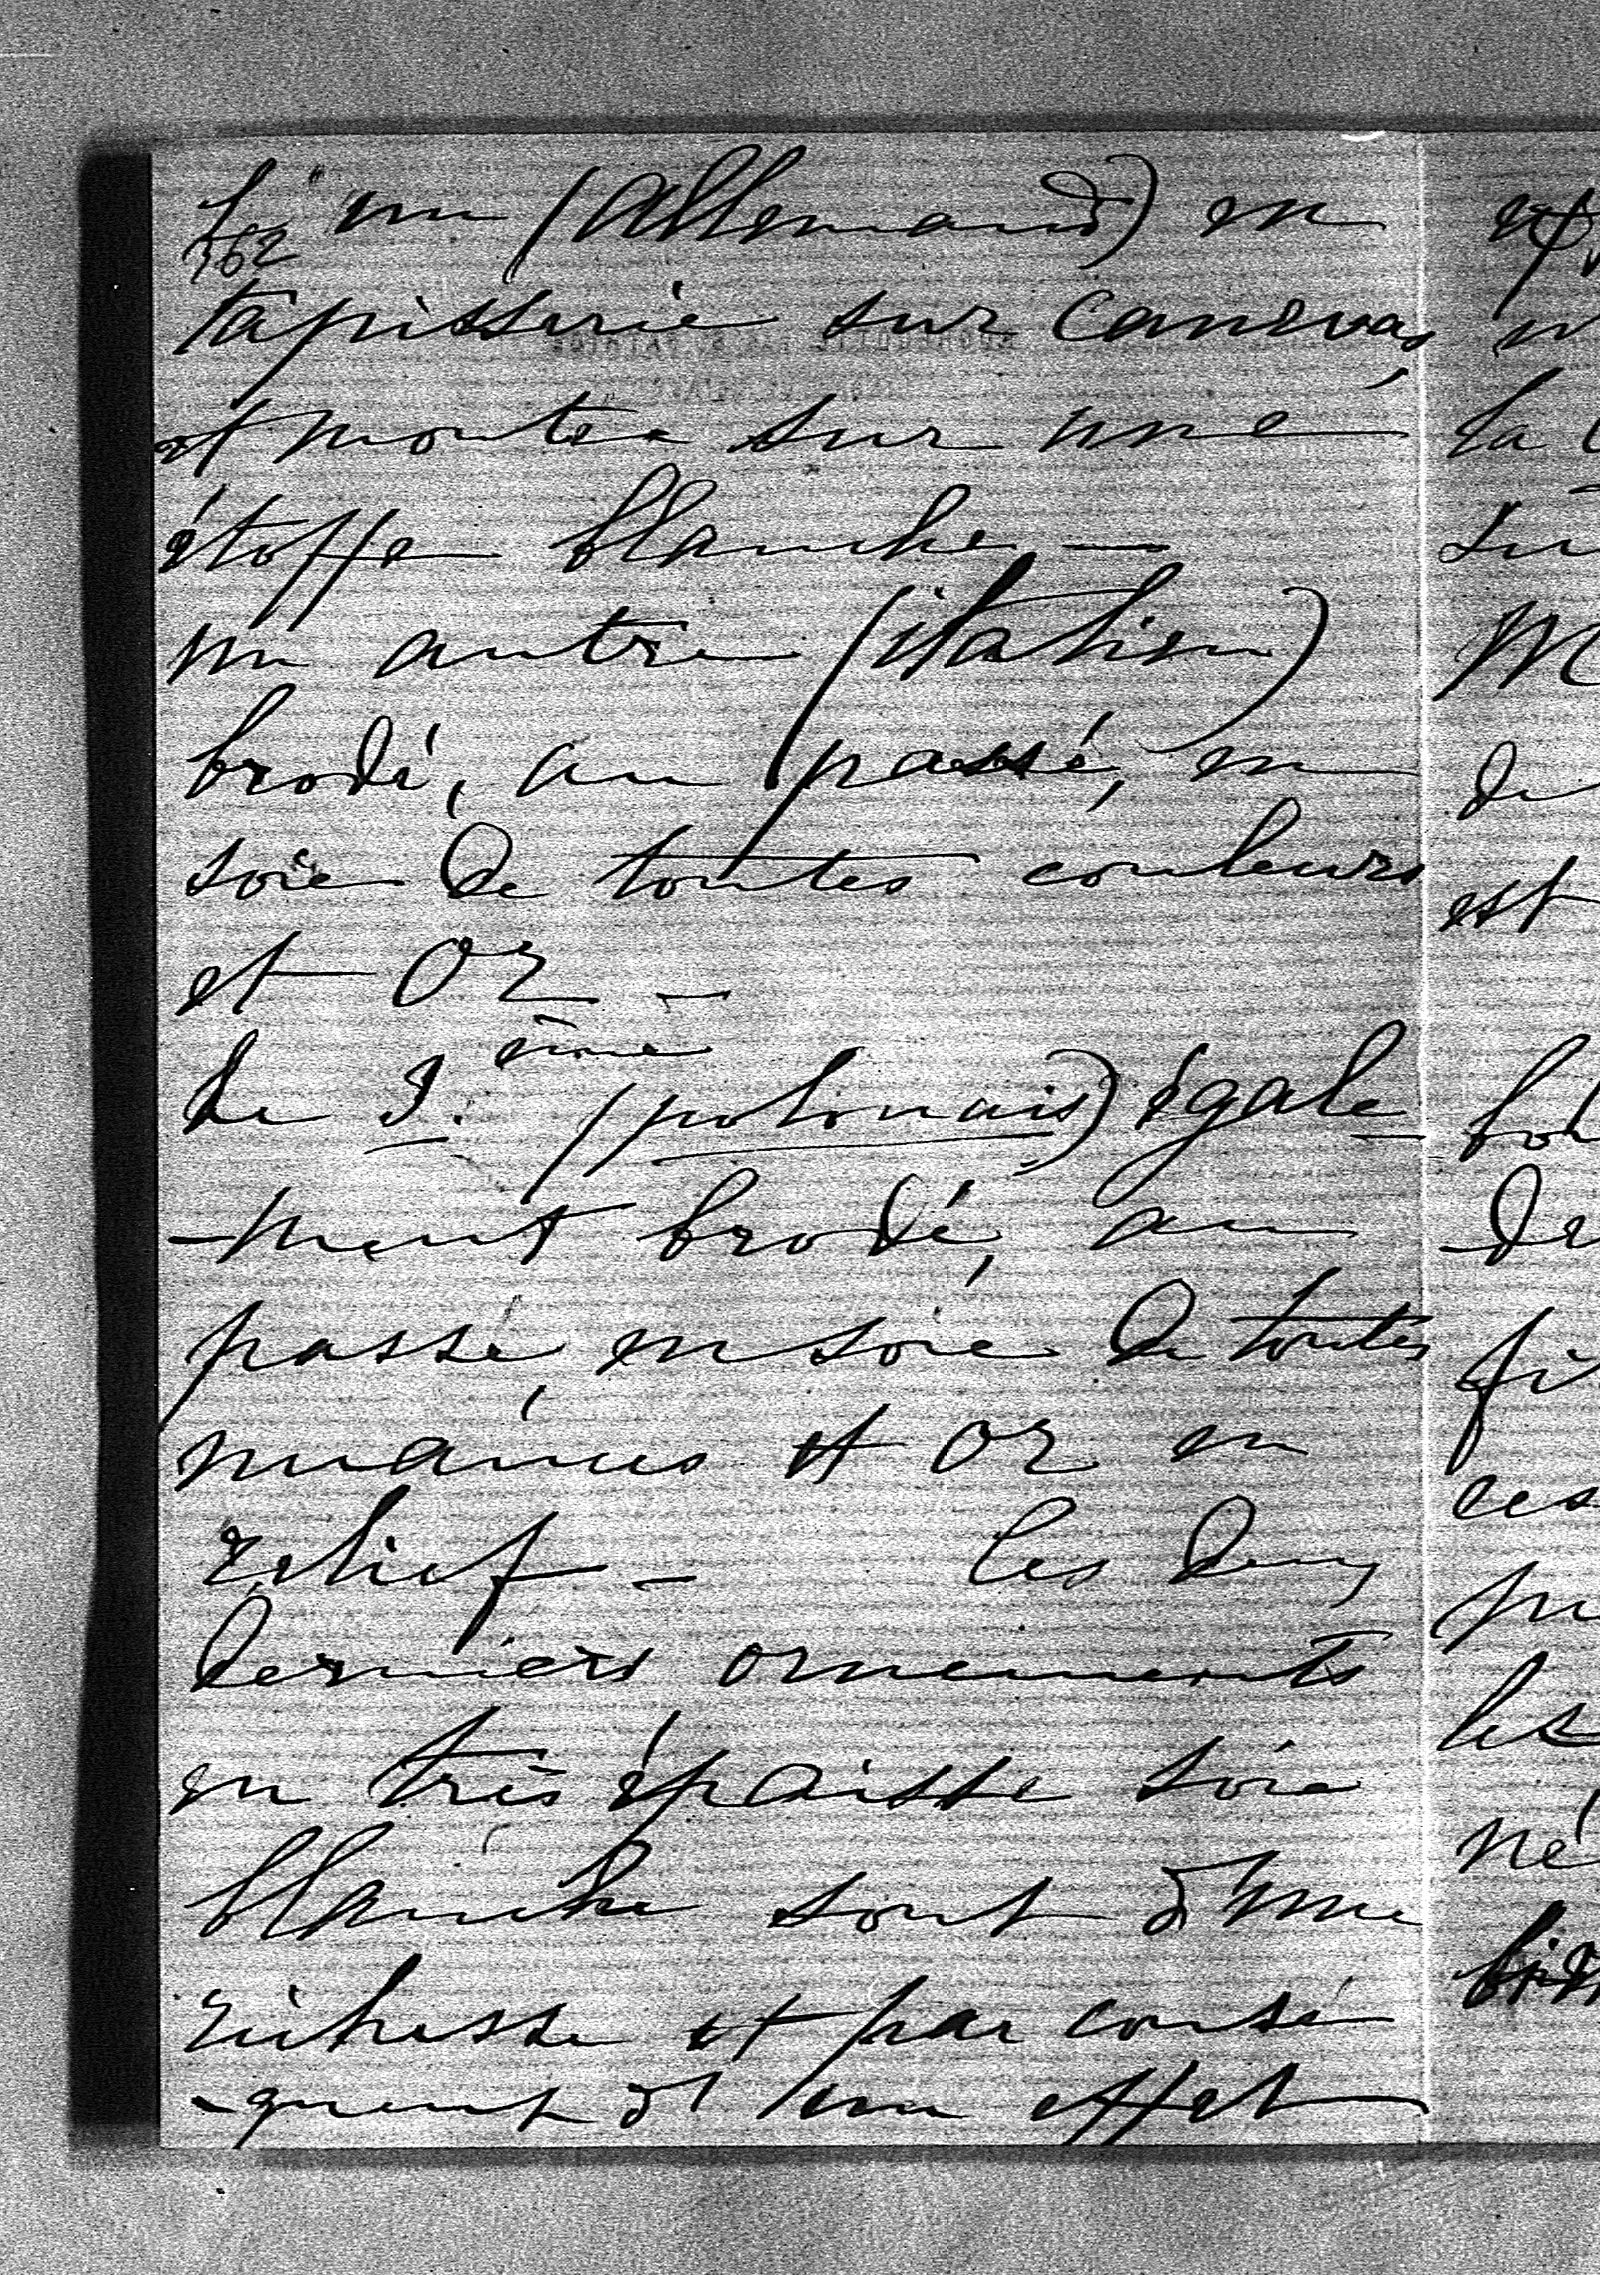 L'un (Allemand) en
362
tapisserie sur canevas
et montée sur une
étoffe blanche —
un autre (italien)
brodé, au passé, en
soie de toutes couleurs
et or —
Le 3.ème (polonais) égale
-ment brodé, au
passé, en soie de toutes
nuances et or en
relief — les deux
derniers ornements
en très épaisse soie
blanche sont d'une
richesse et par consé
-quent d'un effet
la
est
de
fi
ces
les
né